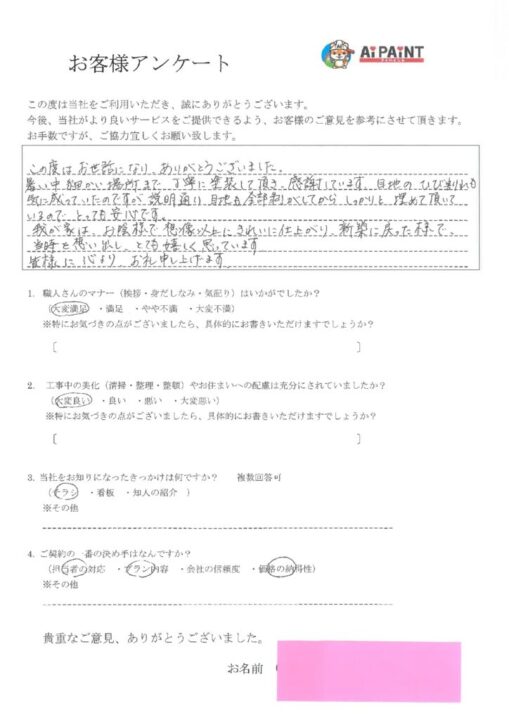 AiPAiNT
お客様アンケート
この度は当社をご利用いただき、誠にありがとうございます。
今後、当社がより良いサービスをご提供できるよう、お客様のご意見を参考にさせて頂きます。
お手数ですが、ご協力宜しくお願い致します。
この度はお世話になり、ありがとうございました。
暑い中、細かい場所まで丁寧に塗装して頂き、感謝しています。目地のひび割れも
気に成っていたのですが、説明通り、目地も全部剥がしてから、しっかりと埋めて頂いて
いるので、とっても安心です。
我が家は、お陰様で想像以上にきれいに仕上がり、新築に戻った様で、
当時を想い出し、とても嬉しく思っています
皆様に心より、お礼申し上げます。
1. 職人さんのマナー（挨拶・身だしなみ・気配り）はいかがでしたか？
（大変満足 ・満足 ・やや不満 ・大変不満）
※特にお気づきの点がございましたら、具体的にお書きいただけますでしょうか？
〔 〕
2. 工事中の美化（清掃・整理・整頓）やお住まいへの配慮は充分にされていましたか？
（大変良い ・良い ・悪い ・大変悪い）
※特にお気づきの点がございましたら、具体的にお書きいただけますでしょうか？
〔 〕
3. 当社をお知りになったきっかけは何ですか？ 複数回答可
（チラシ ・看板 ・知人の紹介 ）
※その他
4. ご契約の一番の決め手はなんですか？
（担当者の対応 ・プラン内容 ・会社の信頼度 ・価格の納得性）
※その他
貴重なご意見、ありがとうございました。
お名前